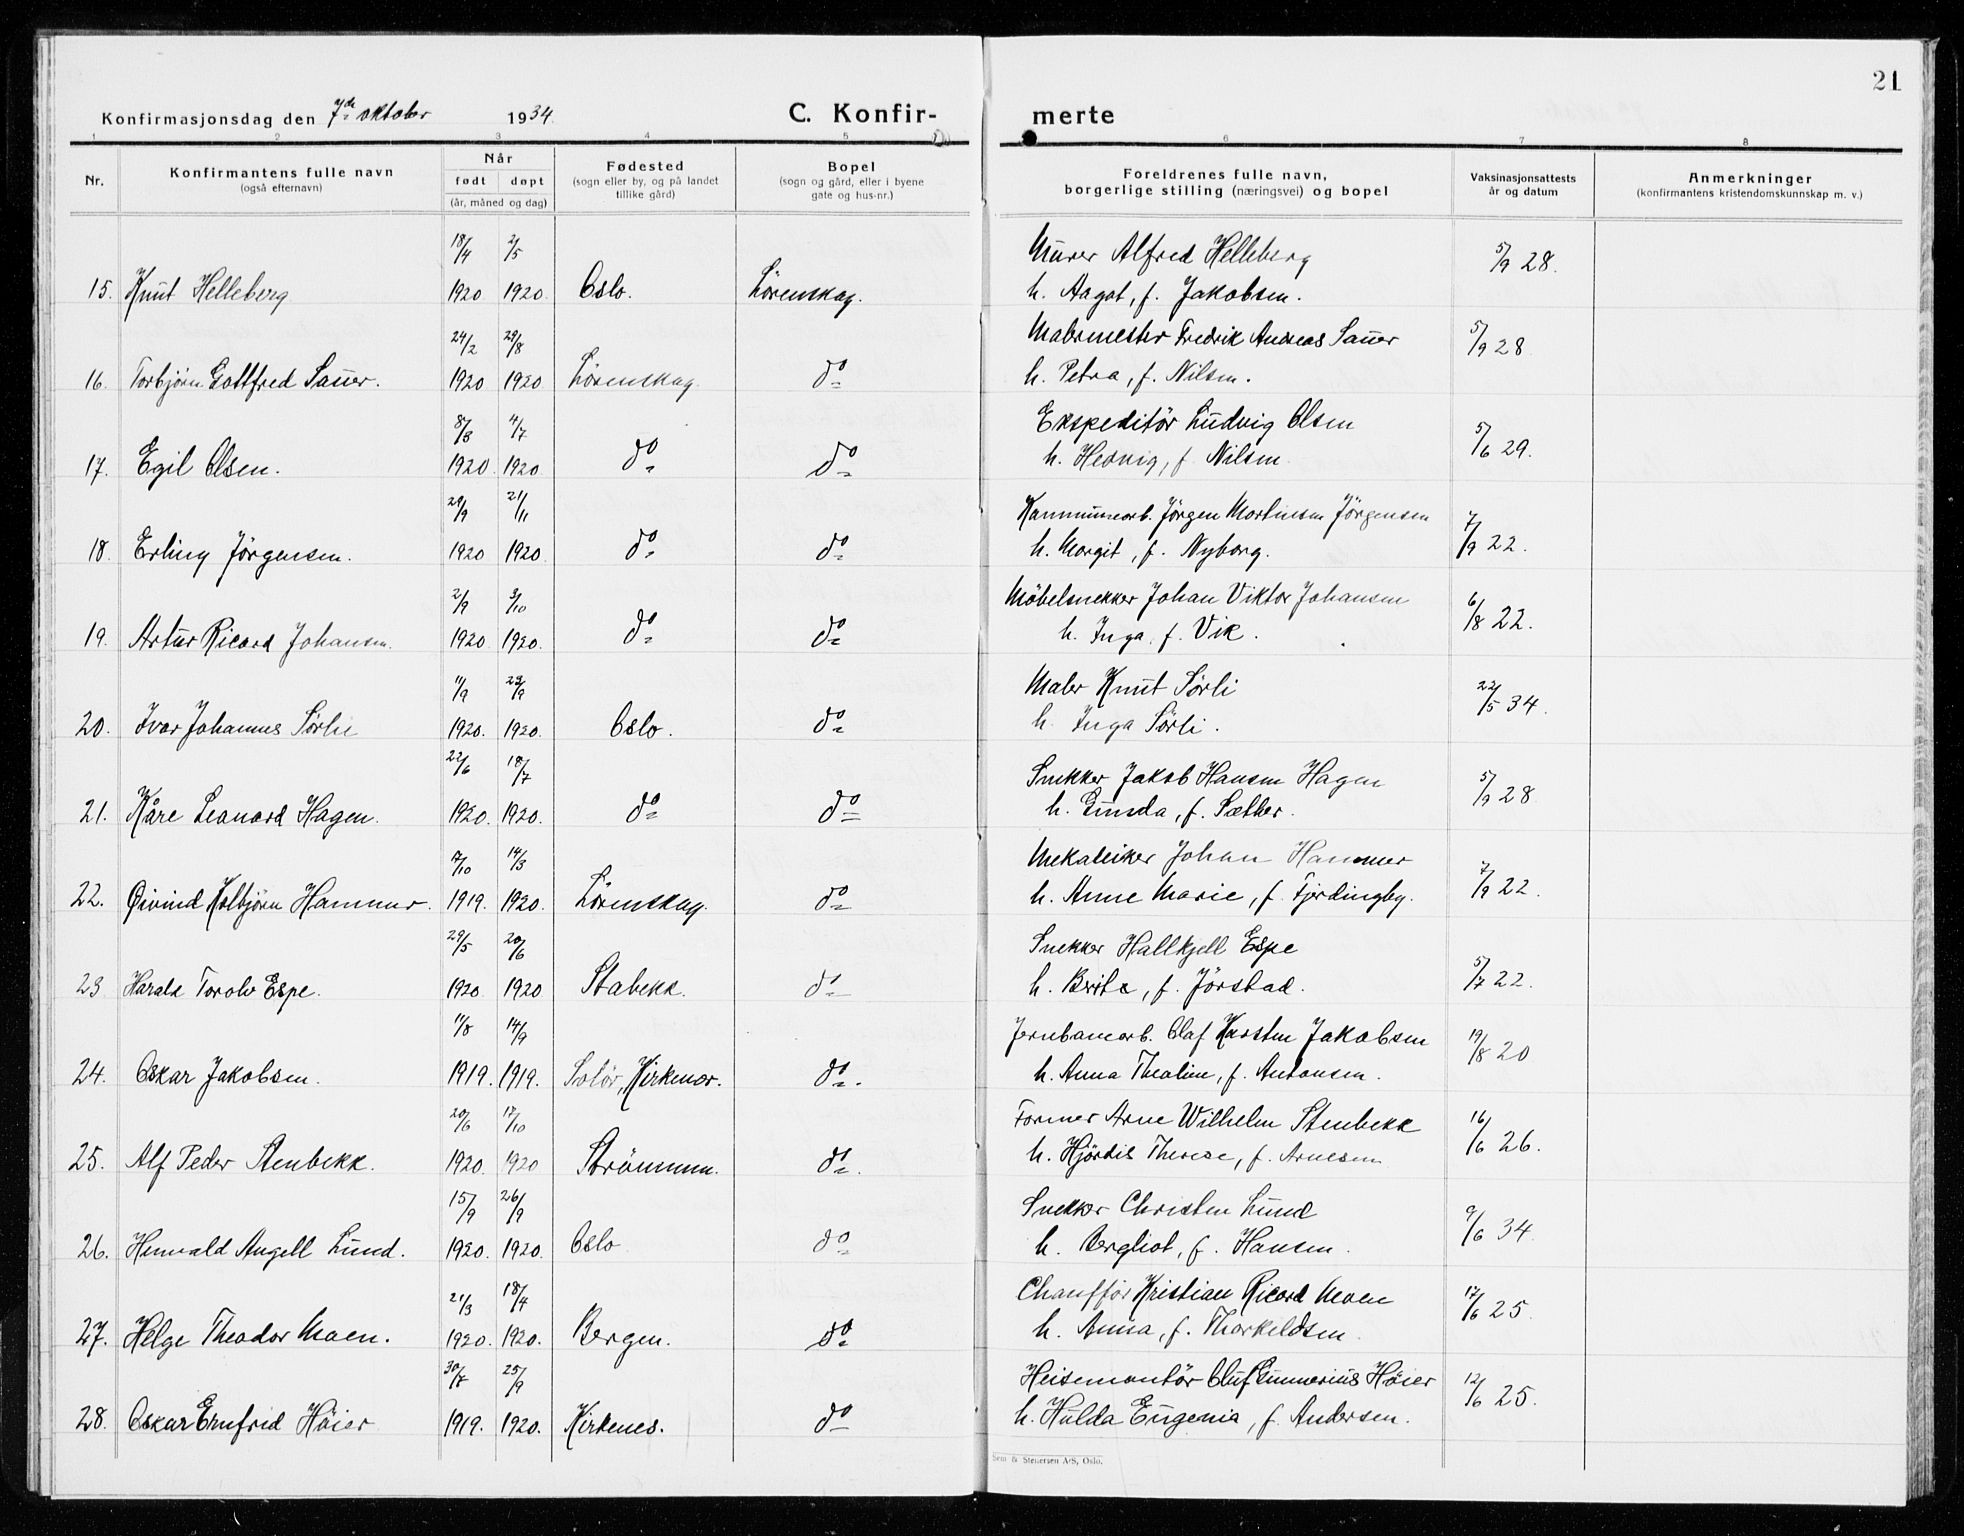 21
Konfirmasjonsdag den 7de oktober 1934 C. Konfir- merte
1 2 3 4 5 6 7 8
Nr. Konfirmantens fulle navn (også efternavn) Når født døpt (år, måned og dag) Fødested (sogn eller by, og på landet tillike gård) Bopel (sogn og gård, eller i byene gate og hus-nr.) Foreldrenes fulle navn, borgerlige stilling (næringsvei) og bopel Vaksinasjonsattests år og datum Anmerkninger (konfirmantens kristendomskunnskap m. v.)
18/4 2/5 Murer Alfred Helleberg 5/9 28.
15. Knut Helleberg 1920 1920. Oslo. Lørenskog. h. Aagot, f. Jakobsen.
24/2 29/8 Malermester Fredrik Andreas Sauer 5/9 28
16. Torbjørn Gottfred Sauer. 1920 1920 Lørenskog. do h. Petra, f. Nilsen.
8/3 4/7 Ekspeditör Ludvig Olsen 5/6 29.
17. Egil Olsen. 1920. 1920. do do h. Hedvig, f. Nilsen.
29/9 21/11 Kommunearb. Jörgen Martinsen Jörgensen 7/9 22.
18. Erling Jörgensen. 1920 1920 do do h. Margit, f. Nyborg.
2/9 3/10 Möbelsnekker Johan Viktor Johansen 6/8 22.
19. Artur Ricard Johansen. 1920 1920. do do h. Inga, f. Vik.
11/9 29/9 Maler Knut Sörli 22/5 34.
20. Ivar Johannes Sörlie 1920. 1920. Oslo. do h. Inga Sörli.
22/6 18/7 Snekker Jakob Hansen Hagen 5/9 28
21. Kåre Leonard Hagen. 1920. 1920. do do h. Gunda, f. Sæther.
17/10 14/3 Mekaniker Johan Hammer 7/9 22.
22. Øivind Kolbjörn Hammer. 1919. 1920. Lörenskog. do h. Anne Marie, f. Fjerdingby.
29/5 20/6 Snekker Hallkjell Espe 5/7 22.
23 Harald Torolv Espe. 1920 1920 Stabekk. do h. Brita, f. Jörstad.
11/8 14/9 Jernbanearb. Olaf Karsten Jakobsen 19/8 20
24. Oskar Jakobsen. 1919. 1919. Solör, Kirkenær. do h. Anna Thealine, f. Antonsen.
20/6 17/10 Former Arne Wilhelm Stenbekk 16/6 26.
25. Alf Peder Stenbekk. 1920. 1920 Strömmen. do h. Hjördis Therese, f. Arnesen
15/9 26/9 Snekker Christen Lund 9/6 34.
26. Henvald Angell Lund. 1920. 1920. Oslo do h. Bergliot, f. Hansen.
21/3 18/4 Chaufför Kristian Ricard Moen 17/6 25.
27. Helge Theodor Moen. 1920. 1920. Bergen. do h. Anna, f. Thorkildsen.
30/8 25/9 Heisemontör Oluf Gunnerius Höier 12/6 25.
28. Oskar Ernfrid Höier 1919. 1920. Kirkenes. do h. Hulda Eugenia, f. Andersen.
Sem & Stenersen A/S, Oslo.